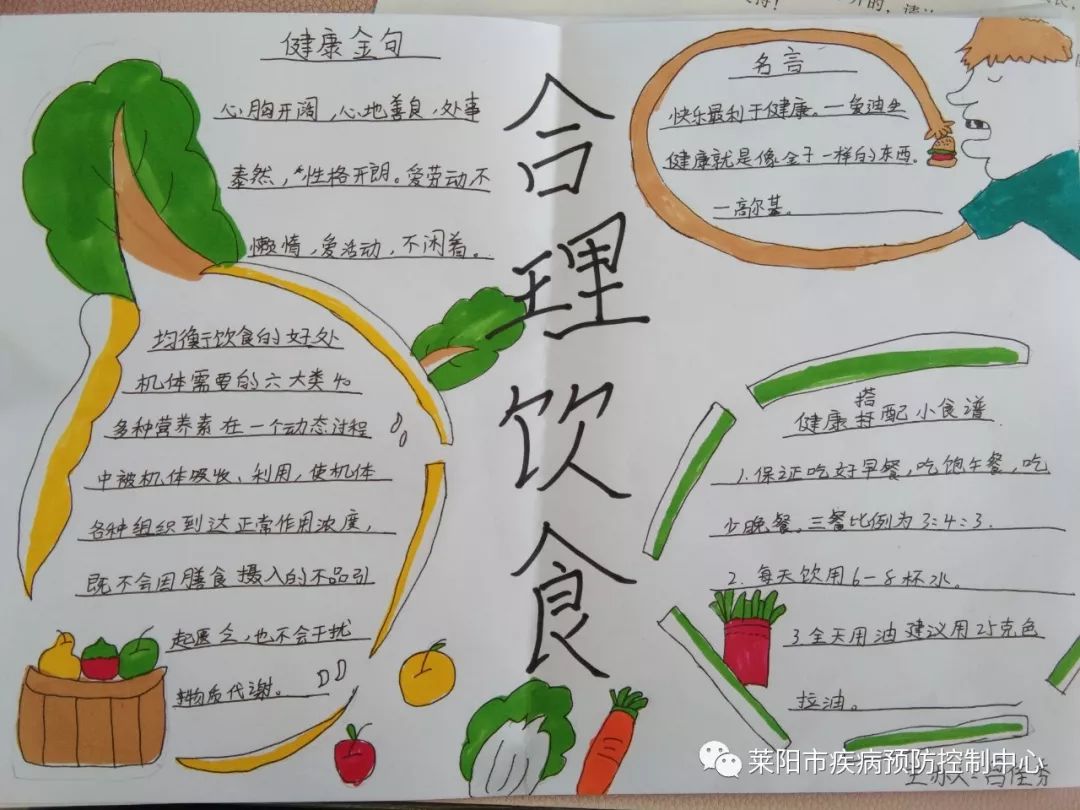 健康金句
心胸开阔，心地善良，处事
泰然，性格开朗。爱劳动不
懒惰，爱活动，不闲着。
均衡饮食的好处
机体需要的六大类40
多种营养素在一个动态过程
中被机体吸收、利用，使机体
各种组织到达正常作用浓度，
既不会因膳食摄入的不品引
起匮乏，也不会干扰
物质代谢。
合理饮食
名言
快乐最利于健康。一爱迪生
健康就是像金子一样的东西。
一高尔基。
健康搭配小食谱
1.保证吃好早餐，吃饱午餐，吃
少晚餐。三餐比例为3:4:3.
2.每天饮用6-8杯水。
3.全天用油建议用25克色
拉油。
莱阳市疾病预防控制中心